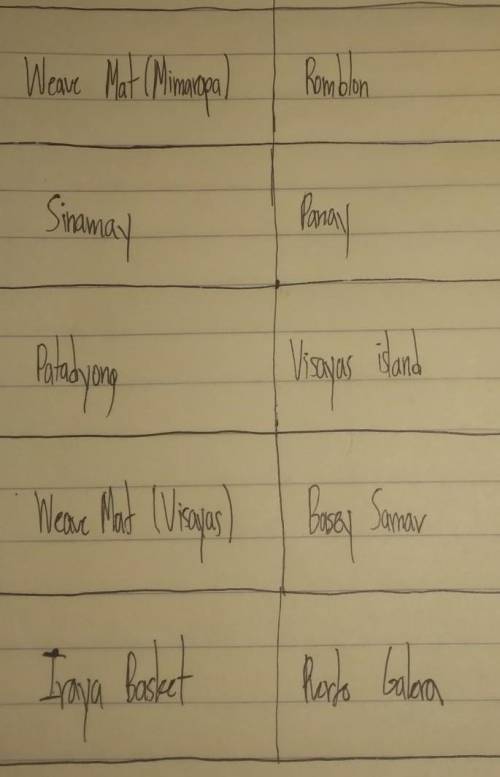 Weave Mat (Mimaropa) Romblon
Sinamay Panay
Patadyong Visayas island
Weave Mat (Visayas) Basey Samar
Iraya Basket Puerto Galera